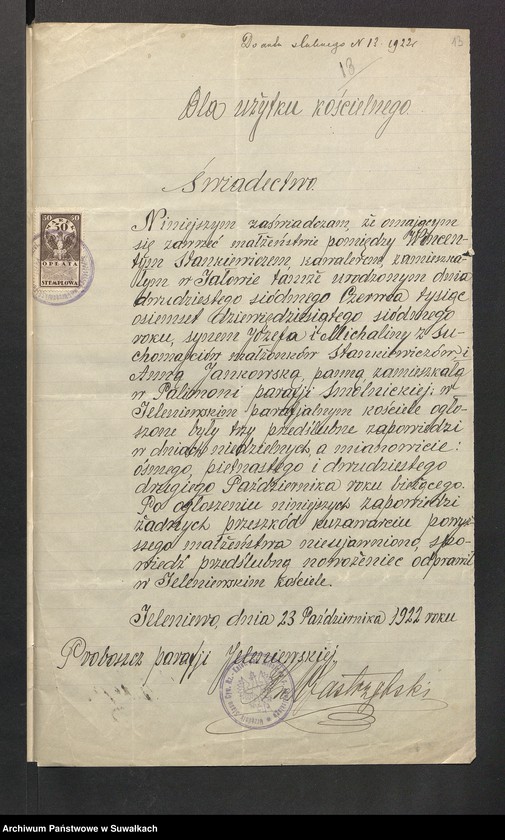 Do aktu ślubnego N 12 1922 r
13
13
Dla użytku kościelnego.
Świadectwo.
Niniejszym zaświadczam, że o mającym
się zawrzeć małżeństwie pomiędzy Wincen-
tym Stankiewiczem, kawalerem, zamieszka-
łym w Jałowie tamże urodzonym dnia
dwudziestego siódmego Czerwca tysiąc
osiemset dziewięćdziesiątego siódmego
roku, synem Józefa i Michaliny z Su-
chomaciów małżonków Stankiewiczów i
Anną Jankowską, panną zamieszkałą
w Palimoni parafji Smolnickiej: w
Jeleniewskim parafjalnym kościele ogło-
szone były trzy przedślubne zapowiedzi
w dniach niedzielnych, a mianowicie:
ósmego, piętnastego i dwudziestego
drugiego Października roku bieżącego.
Po ogłoszeniu niniejszych zapowiedzi
żadnych przeszkód ku zawarciu powyż-
szego małżeństwa nieujawniono, spo-
wiedź przedślubną nowożeniec odprawił
w Jeleniewskim kościele.
Jeleniewo, dnia 23 Października 1922 roku
Proboszcz parafji Jeleniewskiej,
50 50
50
OPŁATA
STEMPLOWA
Archiwum Państwowe w Suwałkach